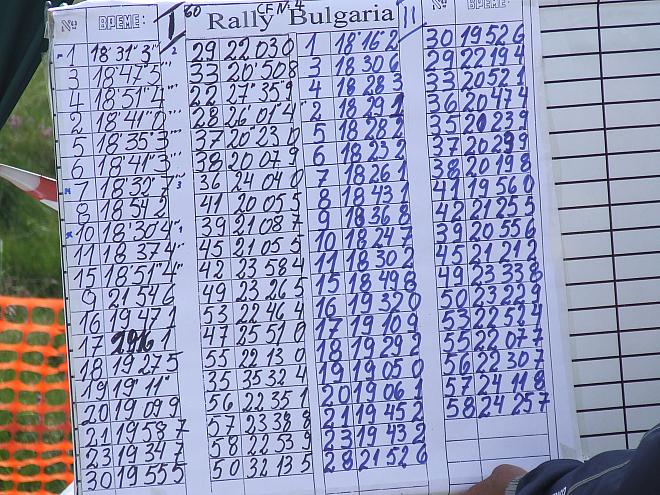 № ВРЕМЕ: I 60 CF № 4 Rally Bulgaria II № ВРЕМЕ:
1 18'31"3
3 18'47"5
4 18'51"4
2 18'41"0
5 18'35"3
6 18'41"3
7 18'32"7
8 18 54 2
10 18'30"4
11 18 37 4
15 18'51"4
9 21 54 6
16 19 47 1
17
18 19 27 5
19 19'11"
20 19 09 9
21 19 58 7
23 19 34 7
30 19 55 5
29 22 03 0
33 20'50 8
22 27'35 9
28 26 01 4
37 20 23 0
38 20 07 9
36 24 04 0
41 20 05 5
39 21 08 7
45 21 05 5
42 23 58 4
49 23 26 5
53 22 46 4
47 25 51 0
55 22 13 0
35 35 32 4
56 22 35 1
57 23 38 8
58 22 53 9
50 32 13 5
1 18'16 2
3 18 30 6
4 18 28 3
2 18 29 1
5 18 28 2
6 18 23 2
7 18 26 1
8 18 43 1
9 18 36 8
10 18 24 7
11 18 30 2
15 18 49 8
16 19 32 0
17 19 10 9
18 19 29 2
19 19 05 0
20 19 06 1
21 19 45 2
23 19 43 2
28 21 52 6
30 19 52 6
29 22 19 4
33 20 52 1
36 20 47 4
35 20 23 9
37 20 29 9
38 20 19 8
41 19 56 0
42 21 25 5
39 20 55 6
45 21 21 2
49 23 33 8
50 23 22 9
53 22 52 4
55 22 07 7
56 22 30 7
57 24 11 8
58 24 25 7